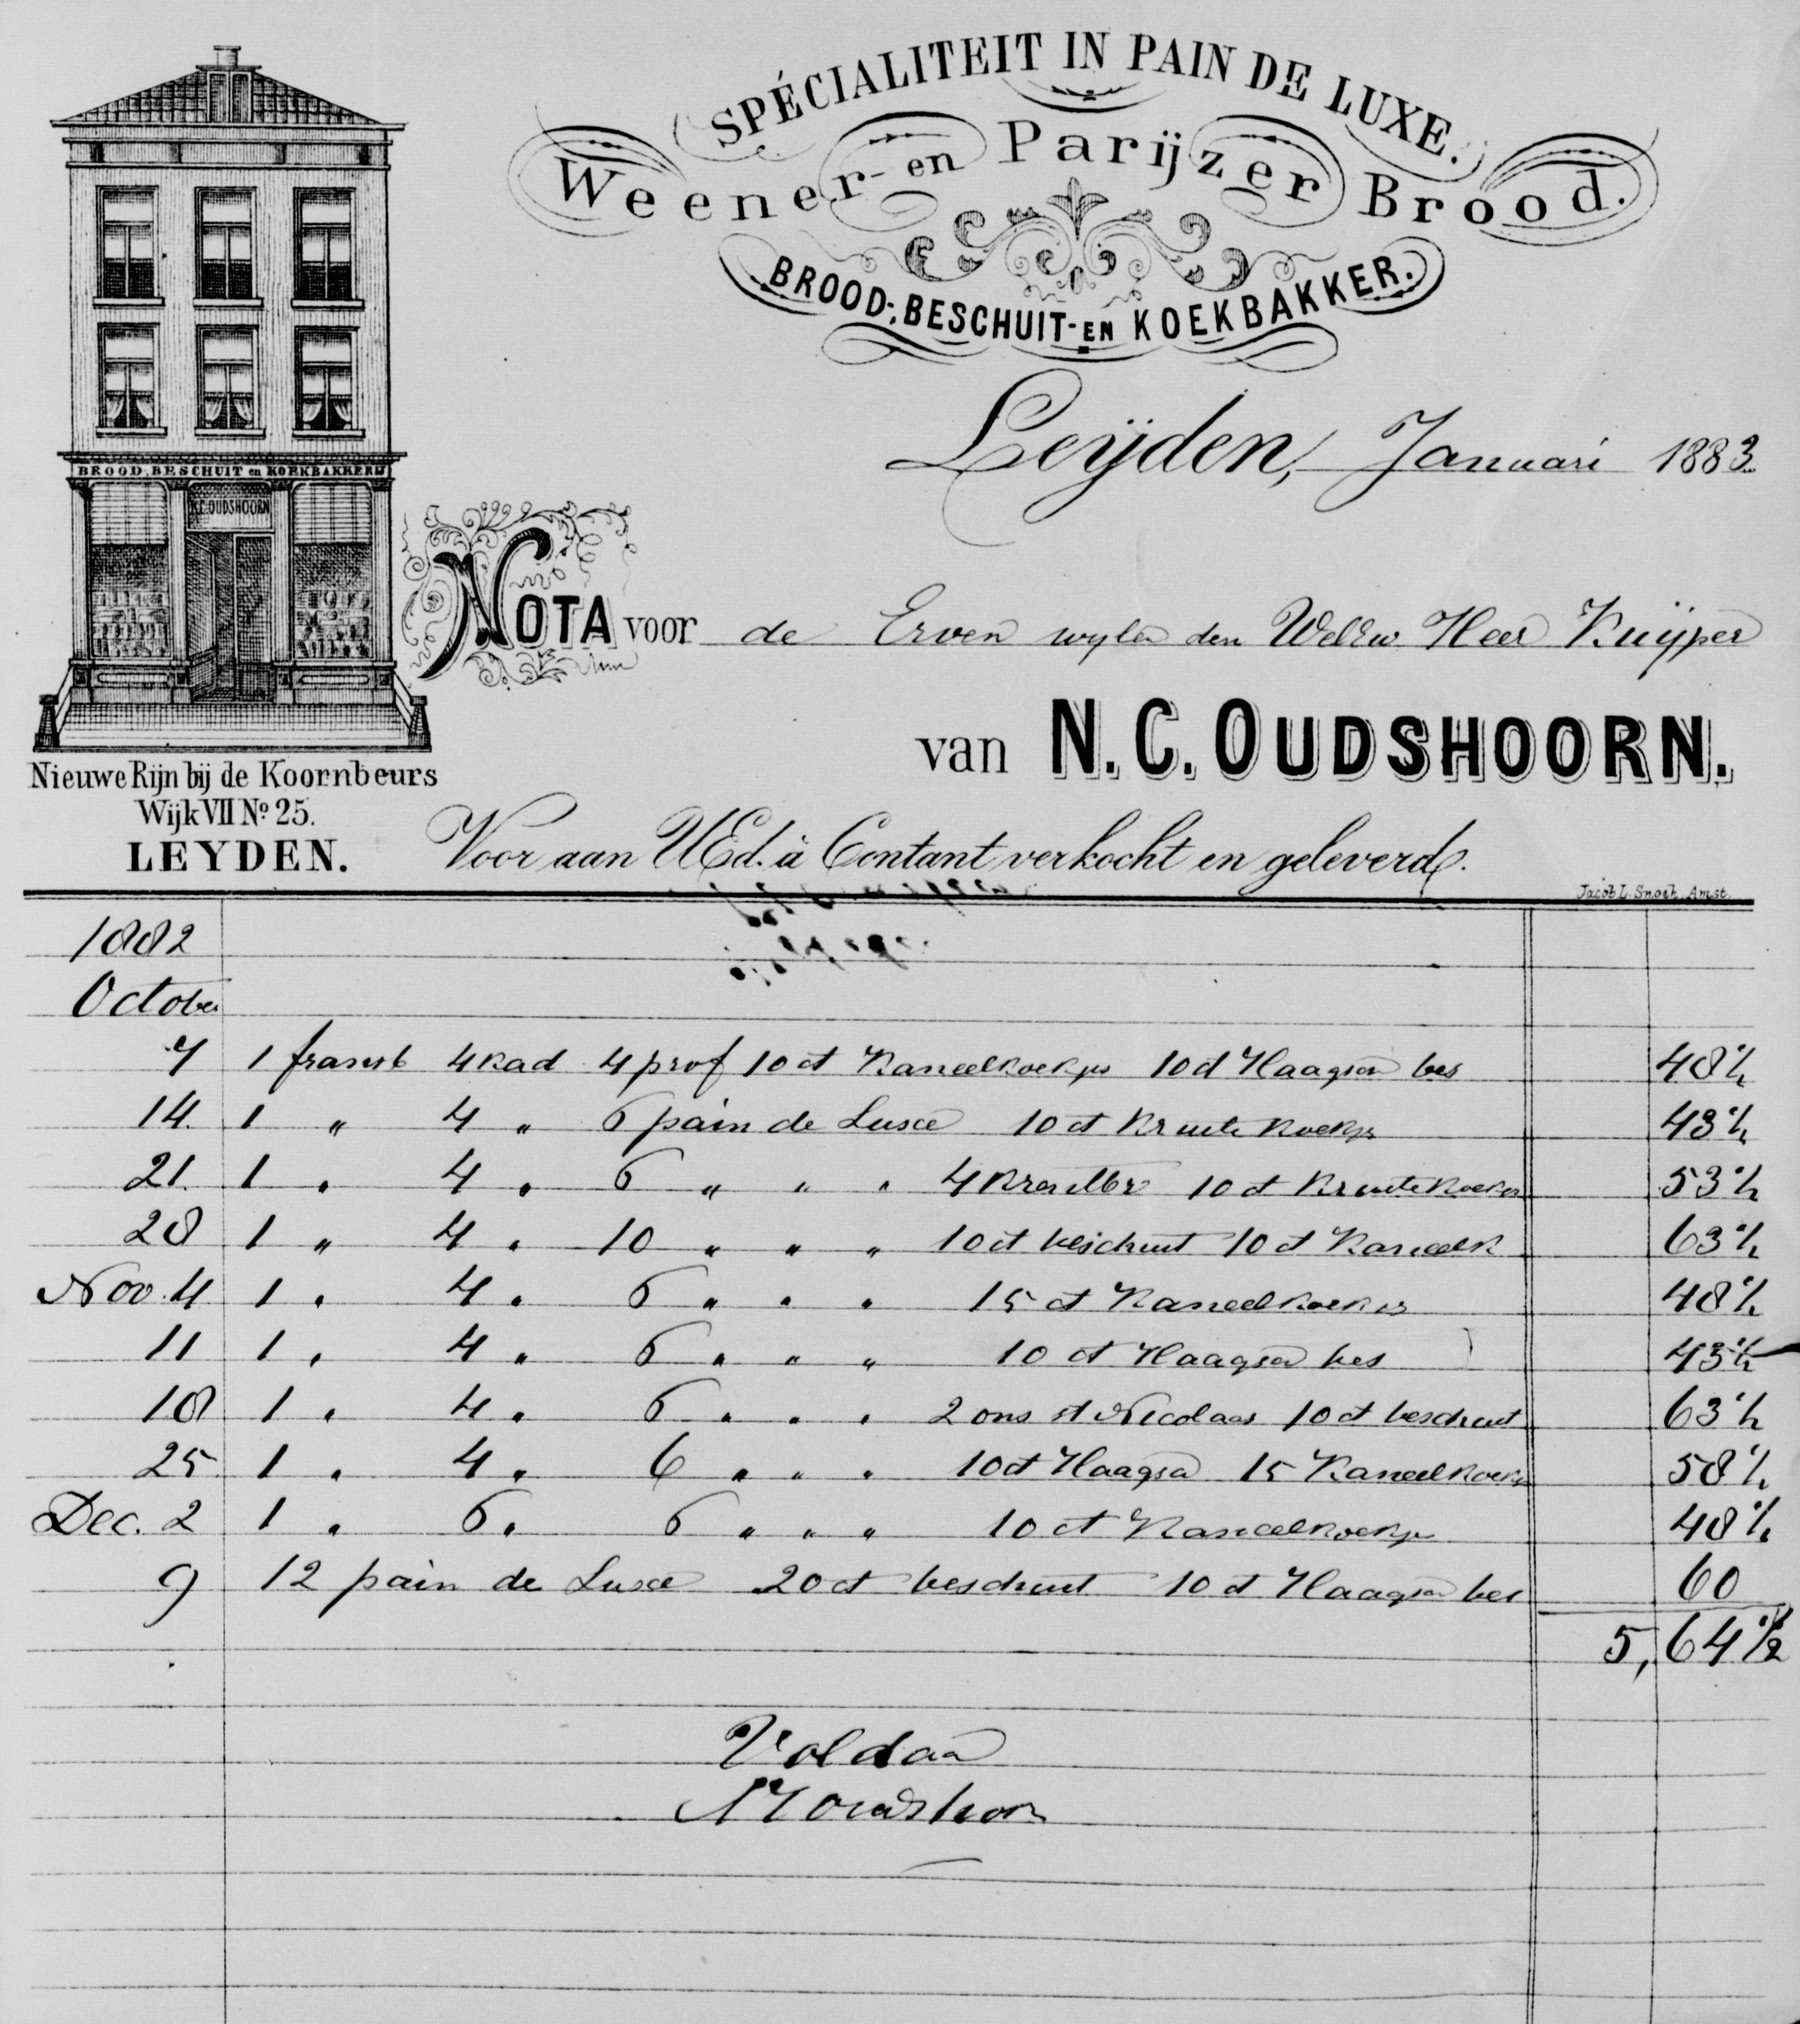 SPÉCIALITEIT IN PAIN DE LUXE.
Weener- en Parijzer Brood.
BROOD-, BESCHUIT- EN KOEKBAKKER.
Leijden, Januari 1883.
BROOD, BESCHUIT en KOEKBAKKERIJ
N.C. OUDSHOORN
NOTA voor de Erven wylen den WelEw. Heer Kuijper
van N. C. OUDSHOORN.
Nieuwe Rijn bij de Koornbeurs
Wijk VII No. 25.
LEYDEN.
Voor aan UEd. à Contant verkocht en geleverd.
Jacob L. Snoek, Amst.
1882
October
7 1 fransch 4 kad 4 prof 10 ct Kaneelkoekjes 10 ct Haagsche bes 48½
14. 1 " 4 " 6 pain de Luxe 10 ct Kruite koekjes 43½
21. 1 " 4 " 6 " " " 4 10 ct Kruitekoekjes 53½
28 1 " 4 " 10 " " " 10 ct beschuit 10 ct Kaneelk 63½
Nov. 4 1 " 4 " 6 " " " 15 ct Kaneelkoekjes 48½
11 1 " 4 " 6 " " " 10 ct Haagsche bes 43½
18 1 " 4 " 6 " " " 2 ons st Nicolaas 10 ct beschuit 63½
25 1 " 4 " 6 " " " 10 ct Haagsche 15 Kaneelkoekjes 58½
Dec. 2 1 " 6 " 6 " " " 10 ct Kaneelkoekjes 48½
9 12 pain de Luxe 20 ct beschuit 10 ct Haagsche bes 60
5,64½
Voldaan
NC Oudshoorn